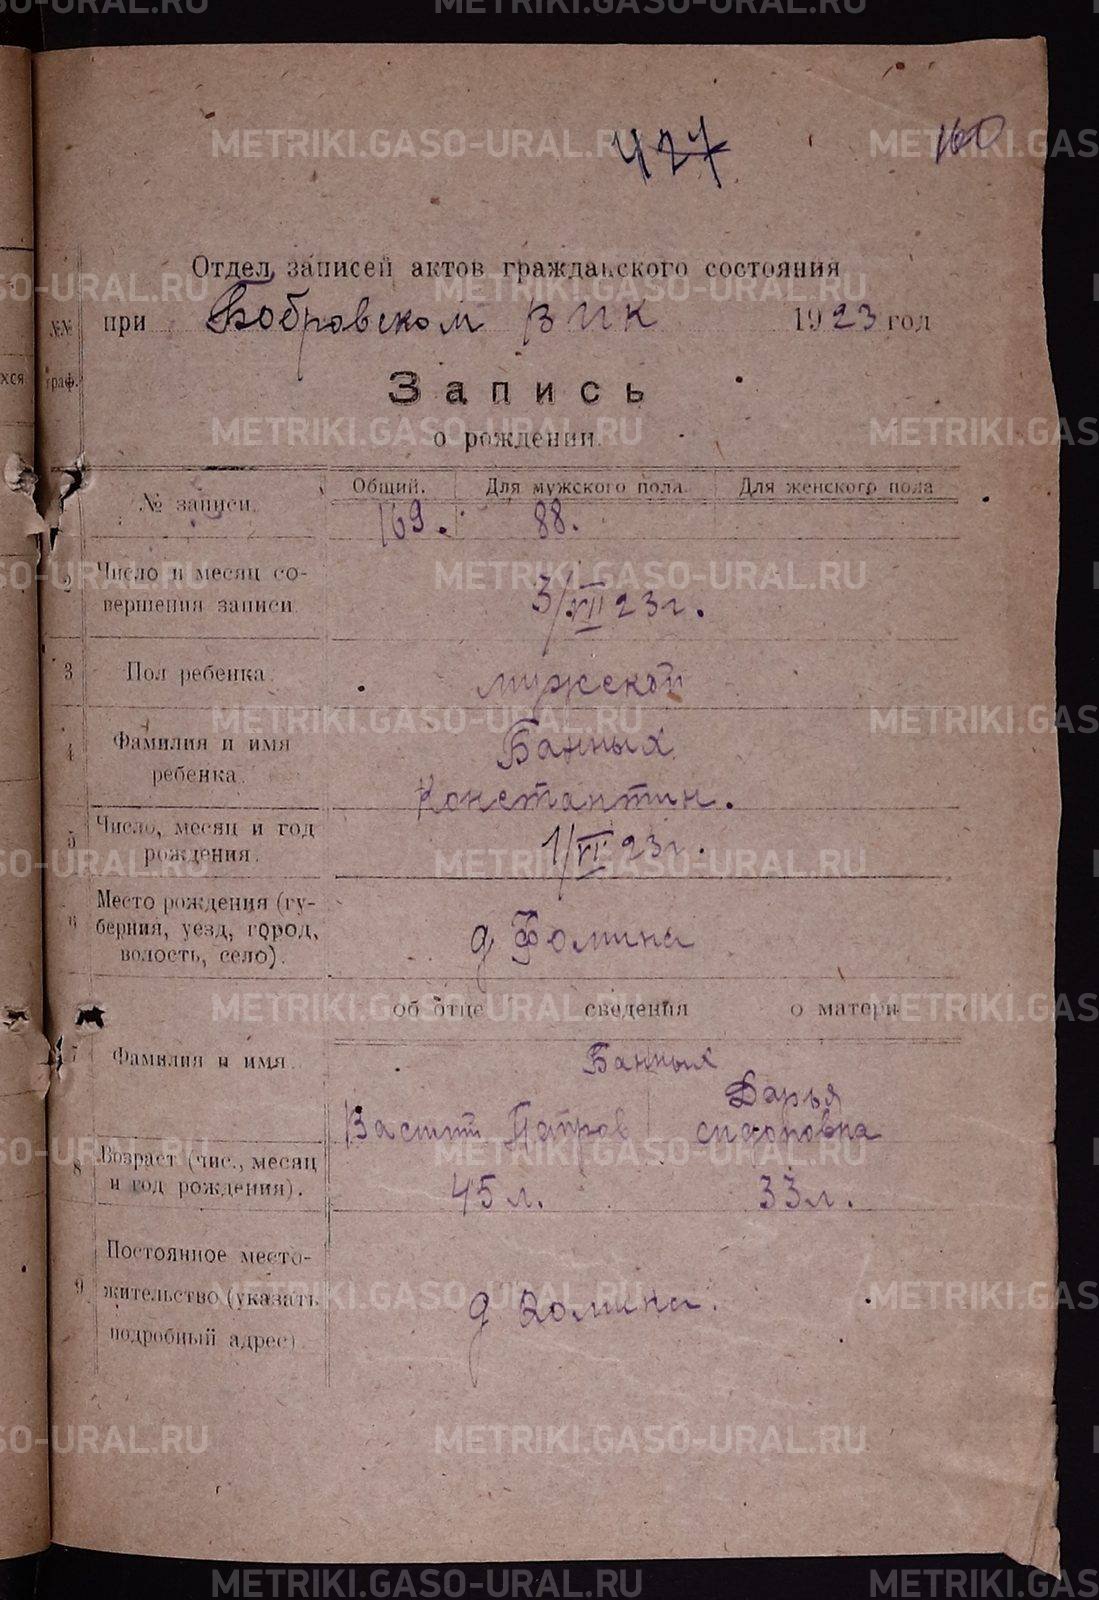 477
160
Отдел записей актов гражданского состояния
при Бобровском ВИК 1923 год
№№ граф.
Запись
о рождении.
Общий. Для мужского пола. Для женского пола
№ записи. 169. 88.
2 Число и месяц со-
вершения записи. 3/VII 23 г.
3 Пол ребенка. мужской
4 Фамилия и имя Банных
ребенка. Константин.
5 Число, месяц и год
рождения. 1/VI 23 г.
6 Место рождения (гу-
берния, уезд, город, д Фомина
волость, село).
об отце сведения о матери
7 Фамилия и имя. Банных
Дарья
Петров сидоровна
8 Возраст (чис., месяц
и год рождения). 45 л. 33 л.
Постоянное место-
9 жительство (указать д Фомина.
подробный адрес)
METRIKI.GASO-URAL.RU